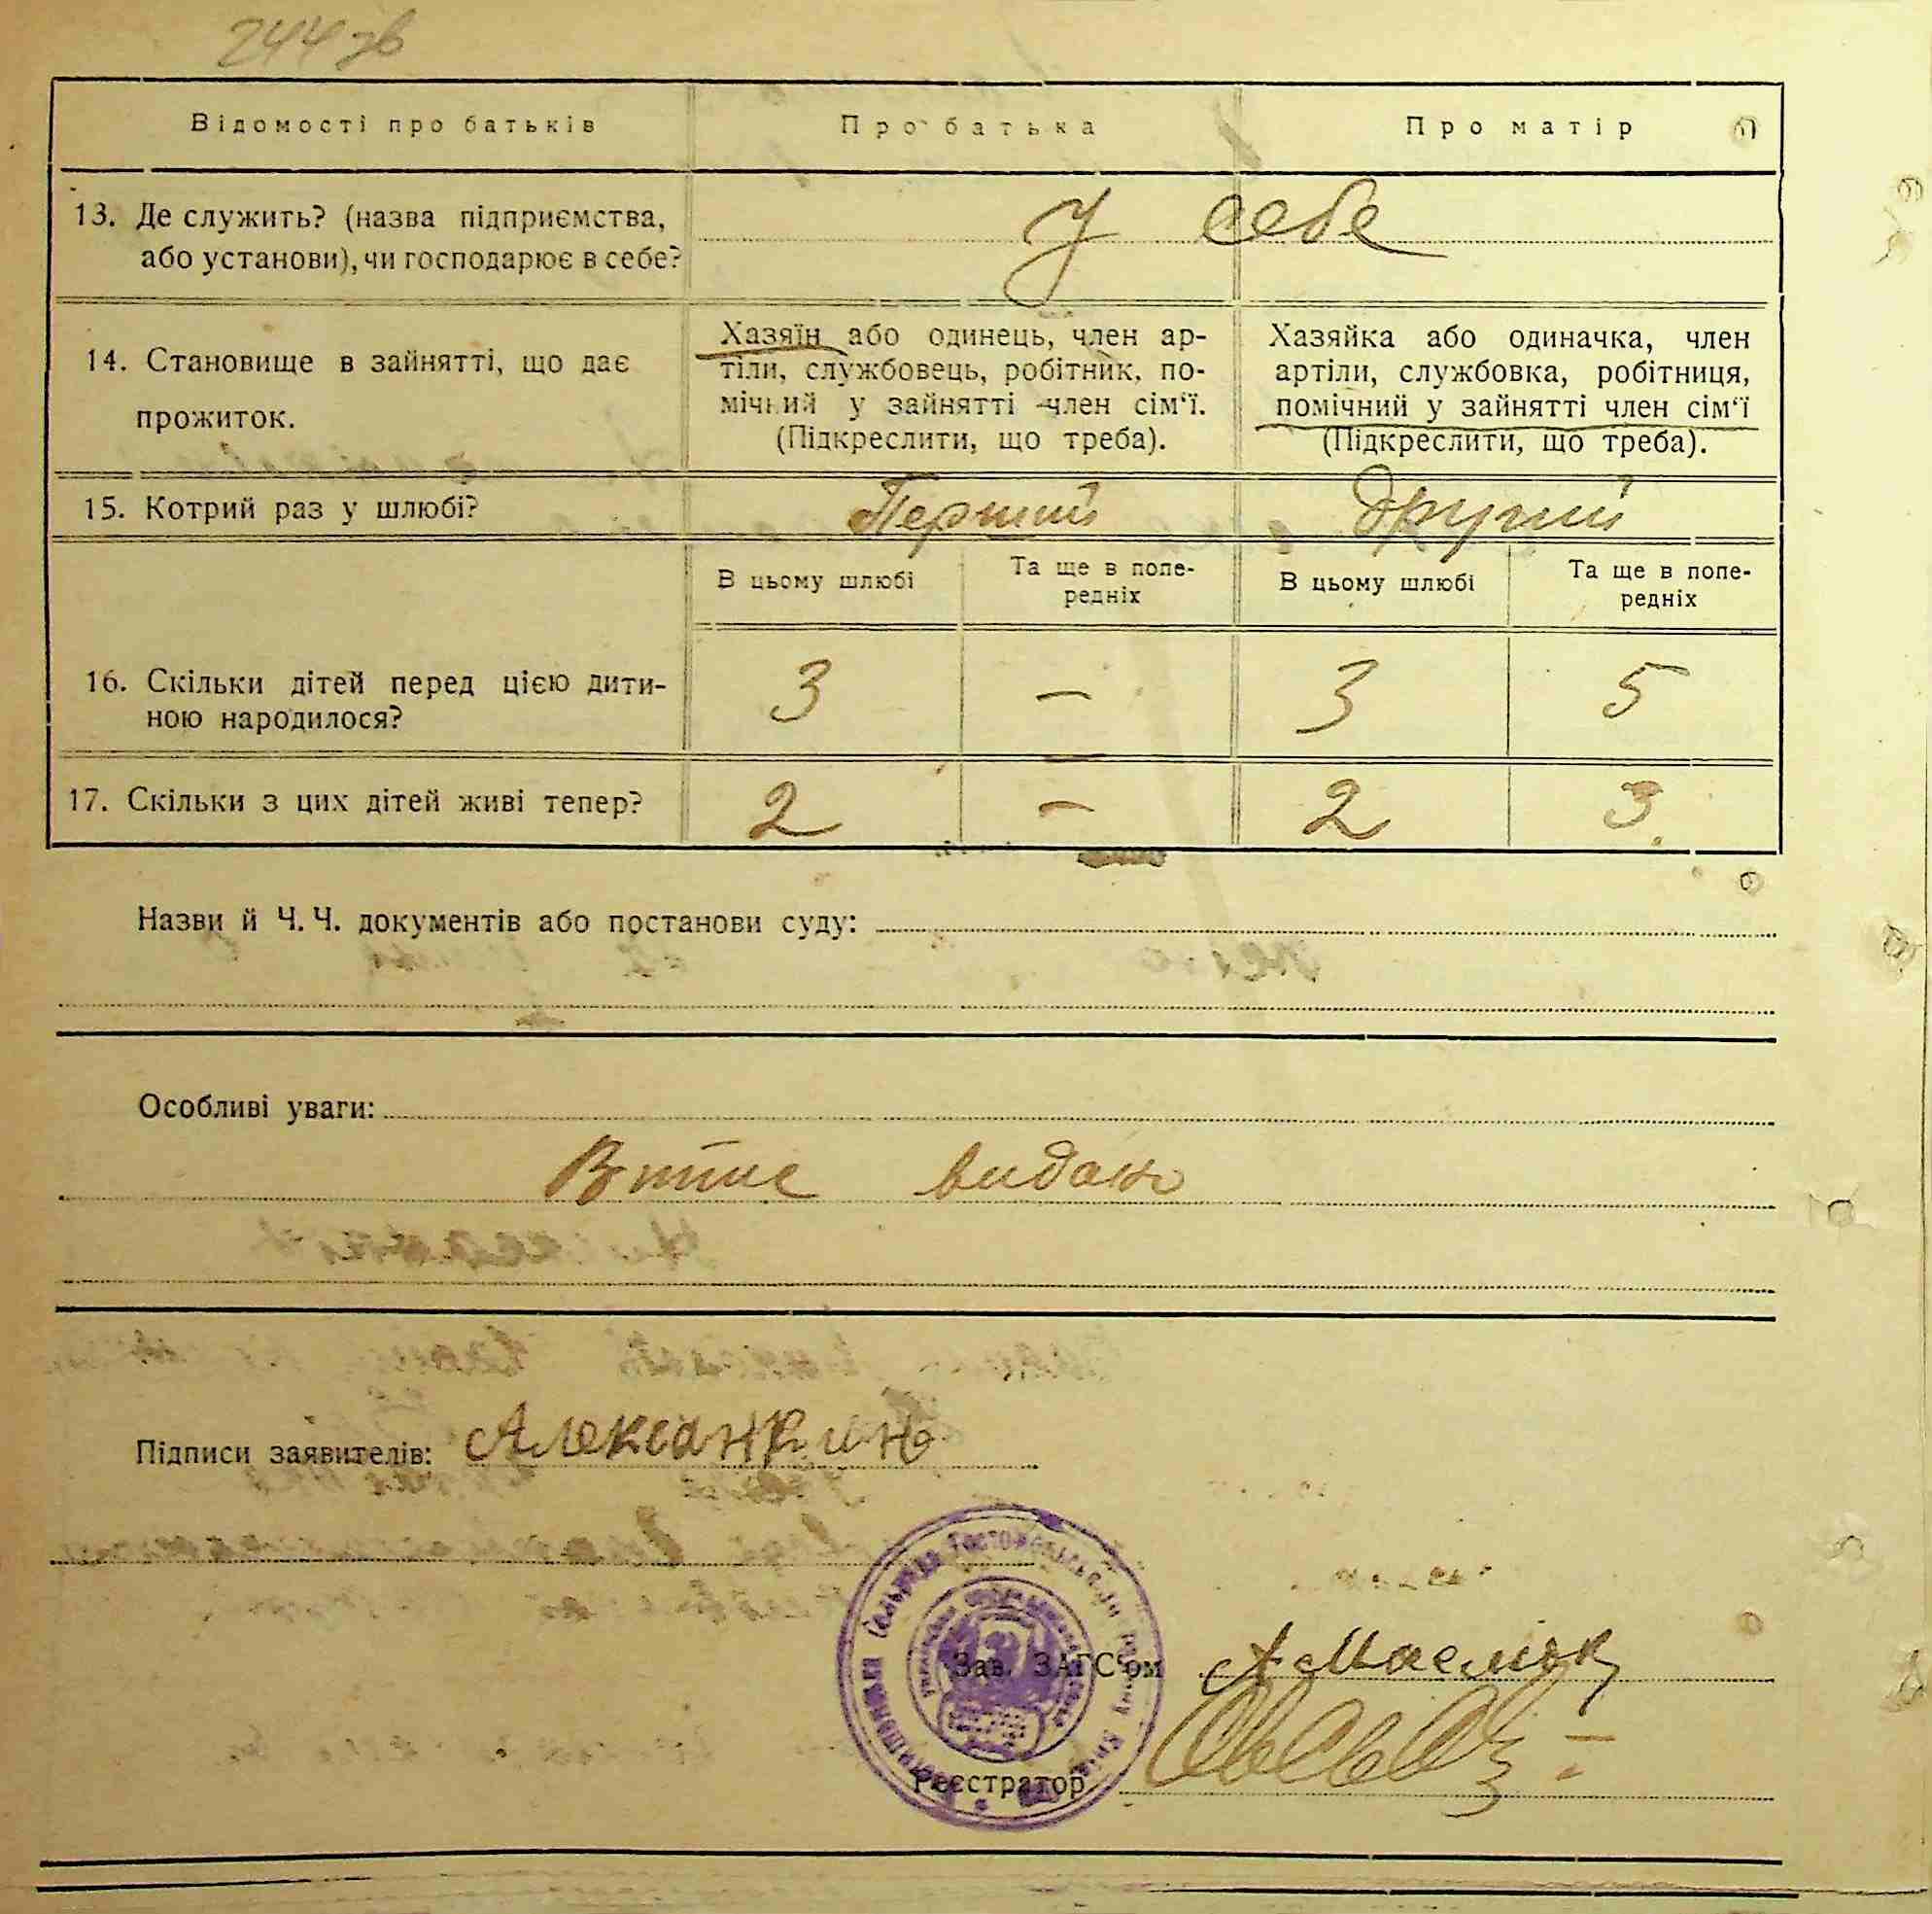 244 зв
Відомості про батьків
Про батька
Про матір
13. Де служить? (назва підприємства,
або установи), чи господарює в себе?
у себе
14. Становище в зайнятті, що дає
прожиток.
Хазяїн або одинець, член ар-
тіли, службовець, робітник, по-
мічний у зайнятті член сім'ї.
(Підкреслити, що треба).
Хазяйка або одиначка, член
артіли, службовка, робітниця,
помічний у зайнятті член сім'ї
(Підкреслити, що треба).
15. Котрий раз у шлюбі?
Перший
другий
В цьому шлюбі
Та ще в попе-
редніх
В цьому шлюбі
Та ще в попе-
редніх
16. Скільки дітей перед цією дити-
ною народилося?
3
—
3
5
17. Скільки з цих дітей живі тепер?
2
—
2
3
Назви й Ч. Ч. документів або постанови суду:
Особливі уваги:
Витис видано
Підписи заявителів:
Зав. ЗАГС'ом
Реєстратор